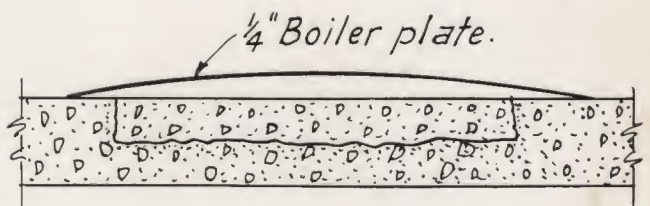 ¼" Boiler plate.